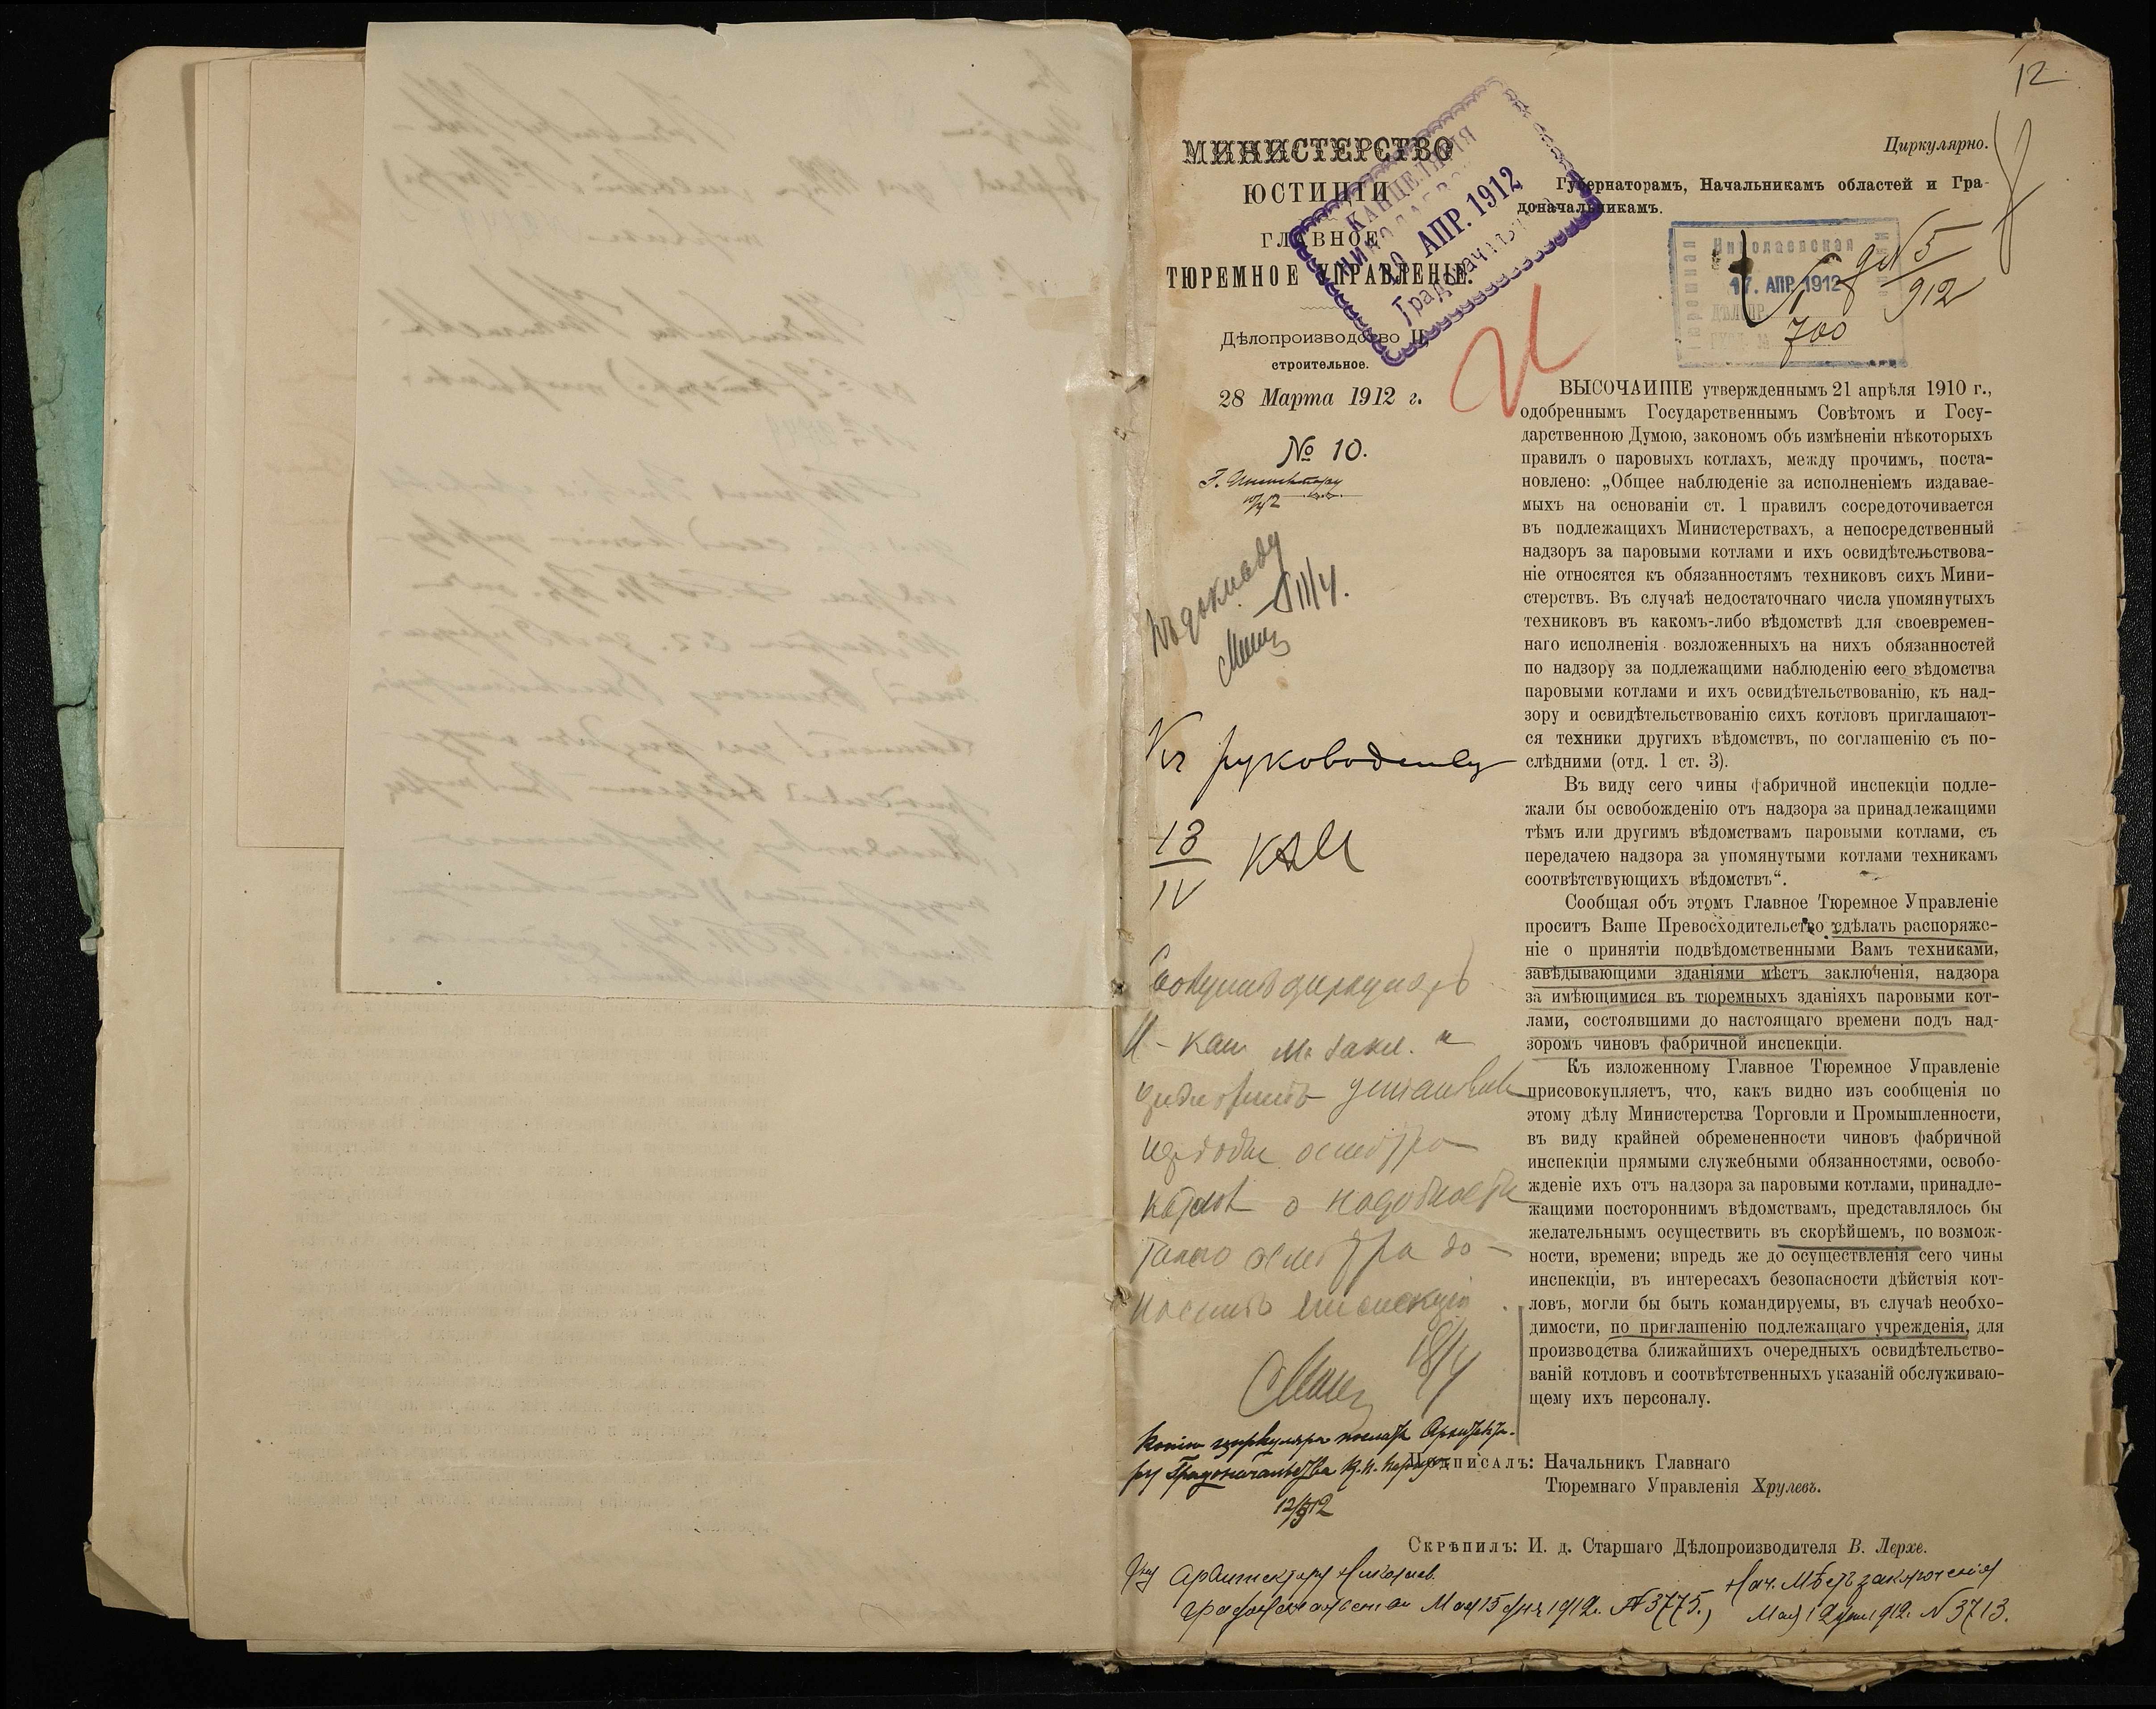 12
Циркулярно.
МИНИСТЕРСТВО
ЮСТИЦІИ
ГЛАВНОЕ
ТЮРЕМНОЕ УПРАВЛЕНІЕ.
Дѣлопроизводство II
строительное.
28 Марта 1912 г.
№ 10.
КАНЦЕЛЯРІЯ
10 АПР. 1912
Градоначальн
Губернаторамъ, Начальникамъ областей и Гра-
доначальникамъ.
Николаевская
17. АПР. 1912
700
№ 5
912
ВЫСОЧАЙШЕ утвержденнымъ 21 апрѣля 1910 г.,
одобреннымъ Государственнымъ Совѣтомъ и Госу-
дарственною Думою, закономъ объ измѣненіи нѣкоторыхъ
правилъ о паровыхъ котлахъ, между прочимъ, поста-
новлено: „Общее наблюденіе за исполненіемъ издавае-
мыхъ на основаніи ст. 1 правилъ сосредоточивается
въ подлежащихъ Министерствахъ, а непосредственный
надзоръ за паровыми котлами и ихъ освидѣтельствова-
ніе относятся къ обязанностямъ техниковъ сихъ Мини-
стерствъ. Въ случаѣ недостаточнаго числа упомянутыхъ
техниковъ въ какомъ-либо вѣдомствѣ для своевремен-
наго исполненія возложенныхъ на нихъ обязанностей
по надзору за подлежащими наблюденію сего вѣдомства
паровыми котлами и ихъ освидѣтельствованію, къ над-
зору и освидѣтельствованію сихъ котловъ приглашают-
ся техники другихъ вѣдомствъ, по соглашенію съ по-
слѣдними (отд. 1 ст. 3).
Въ виду сего чины фабричной инспекціи подле-
жали бы освобожденію отъ надзора за принадлежащими
тѣмъ или другимъ вѣдомствамъ паровыми котлами, съ
передачею надзора за упомянутыми котлами техникамъ
соотвѣтствующихъ вѣдомствъ“.
Сообщая объ этомъ Главное Тюремное Управленіе
проситъ Ваше Превосходительство сдѣлать распоряже-
ніе о принятіи подвѣдомственными Вамъ техниками,
завѣдывающими зданіями мѣстъ заключенія, надзора
за имѣющимися въ тюремныхъ зданіяхъ паровыми кот-
лами, состоявшими до настоящаго времени подъ над-
зоромъ чиновъ фабричной инспекціи.
Къ изложенному Главное Тюремное Управленіе
присовокупляетъ, что, какъ видно изъ сообщенія по
этому дѣлу Министерства Торговли и Промышленности,
въ виду крайней обремененности чиновъ фабричной
инспекціи прямыми служебными обязанностями, освобо-
жденіе ихъ отъ надзора за паровыми котлами, принадле-
жащими постороннимъ вѣдомствамъ, представлялось бы
желательнымъ осуществить въ скорѣйшемъ, по возмож-
ности, времени; впредь же до осуществленія сего чины
инспекціи, въ интересахъ безопасности дѣйствія кот-
ловъ, могли бы быть командируемы, въ случаѣ необхо-
димости, по приглашенію подлежащаго учрежденія, для
производства ближайшихъ очередныхъ освидѣтельство-
ваній котловъ и соотвѣтственныхъ указаній обслуживаю-
щему ихъ персоналу.
Подписалъ: Начальникъ Главнаго
Тюремнаго Управленія Хрулевъ.
Скрѣпилъ: И. д. Старшаго Дѣлопроизводителя В. Лерхе.
Къ докладу
11/4.
Къ руководству
13
IV
18/4
Копія циркуляра послать Архитекто-
ру Градоначальства
Архитектору Николаев.
Мая 15 дня 1912 г. № 3775.,
Нач. Мѣстъ заключенія
Мая 12 дня 1912 № 3713.